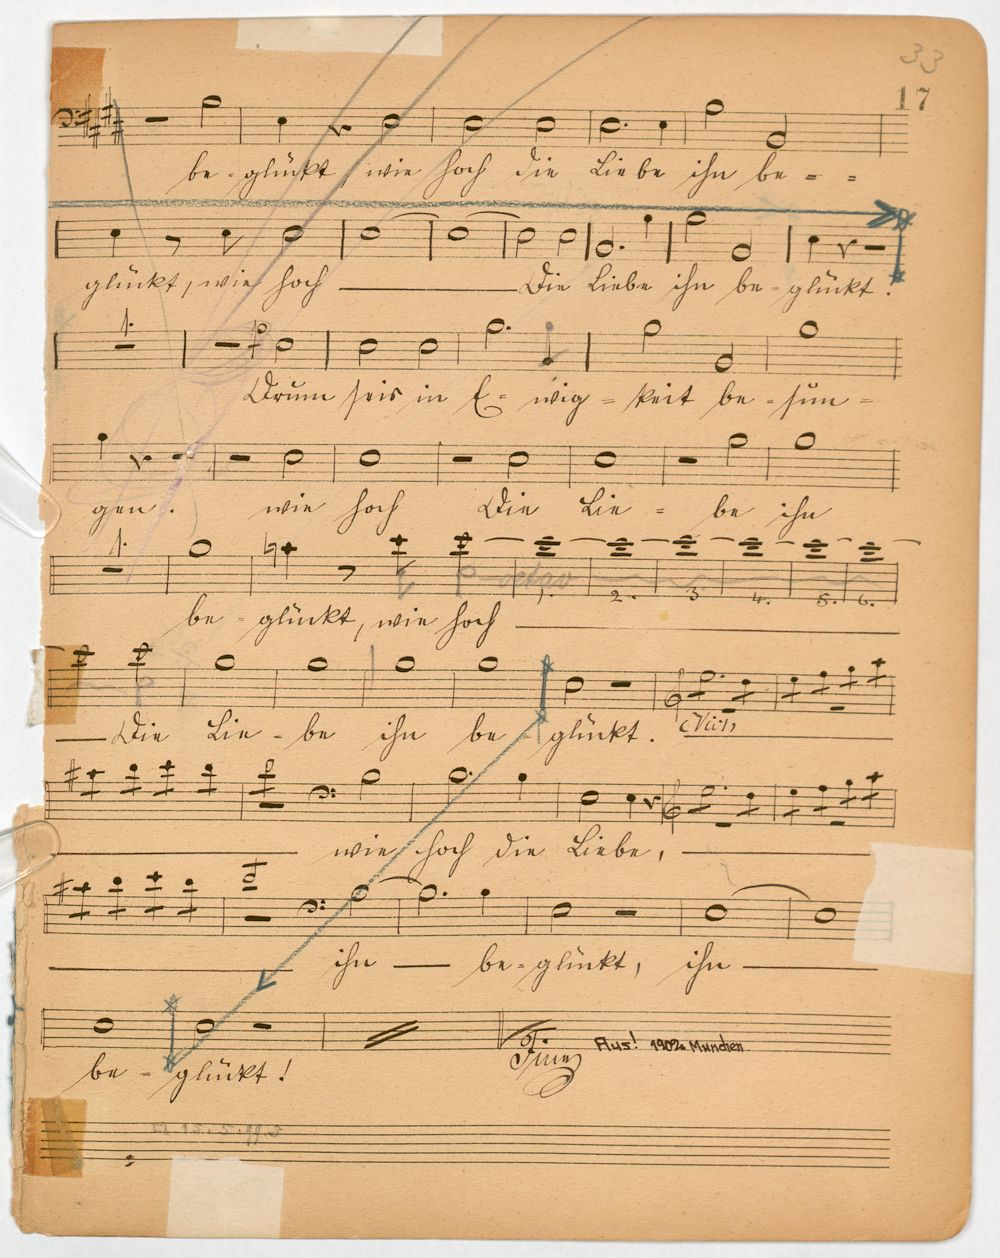 33
17
be - glückt, wie hoch die Liebe ihn be = =
glückt, wie hoch Die Liebe ihn be - glückt.
1.
Drum seis in E = wig = keit be = sun =
gen. wie hoch Die Lie = be ihn
1.
octav
1. 2. 3 4. 5. 6.
be - glückt, wie hoch
Die Lie - be ihn be glückt.
wie hoch die Liebe,
ihn be - glückt, ihn
Aus! 1902. München
be - glückt!